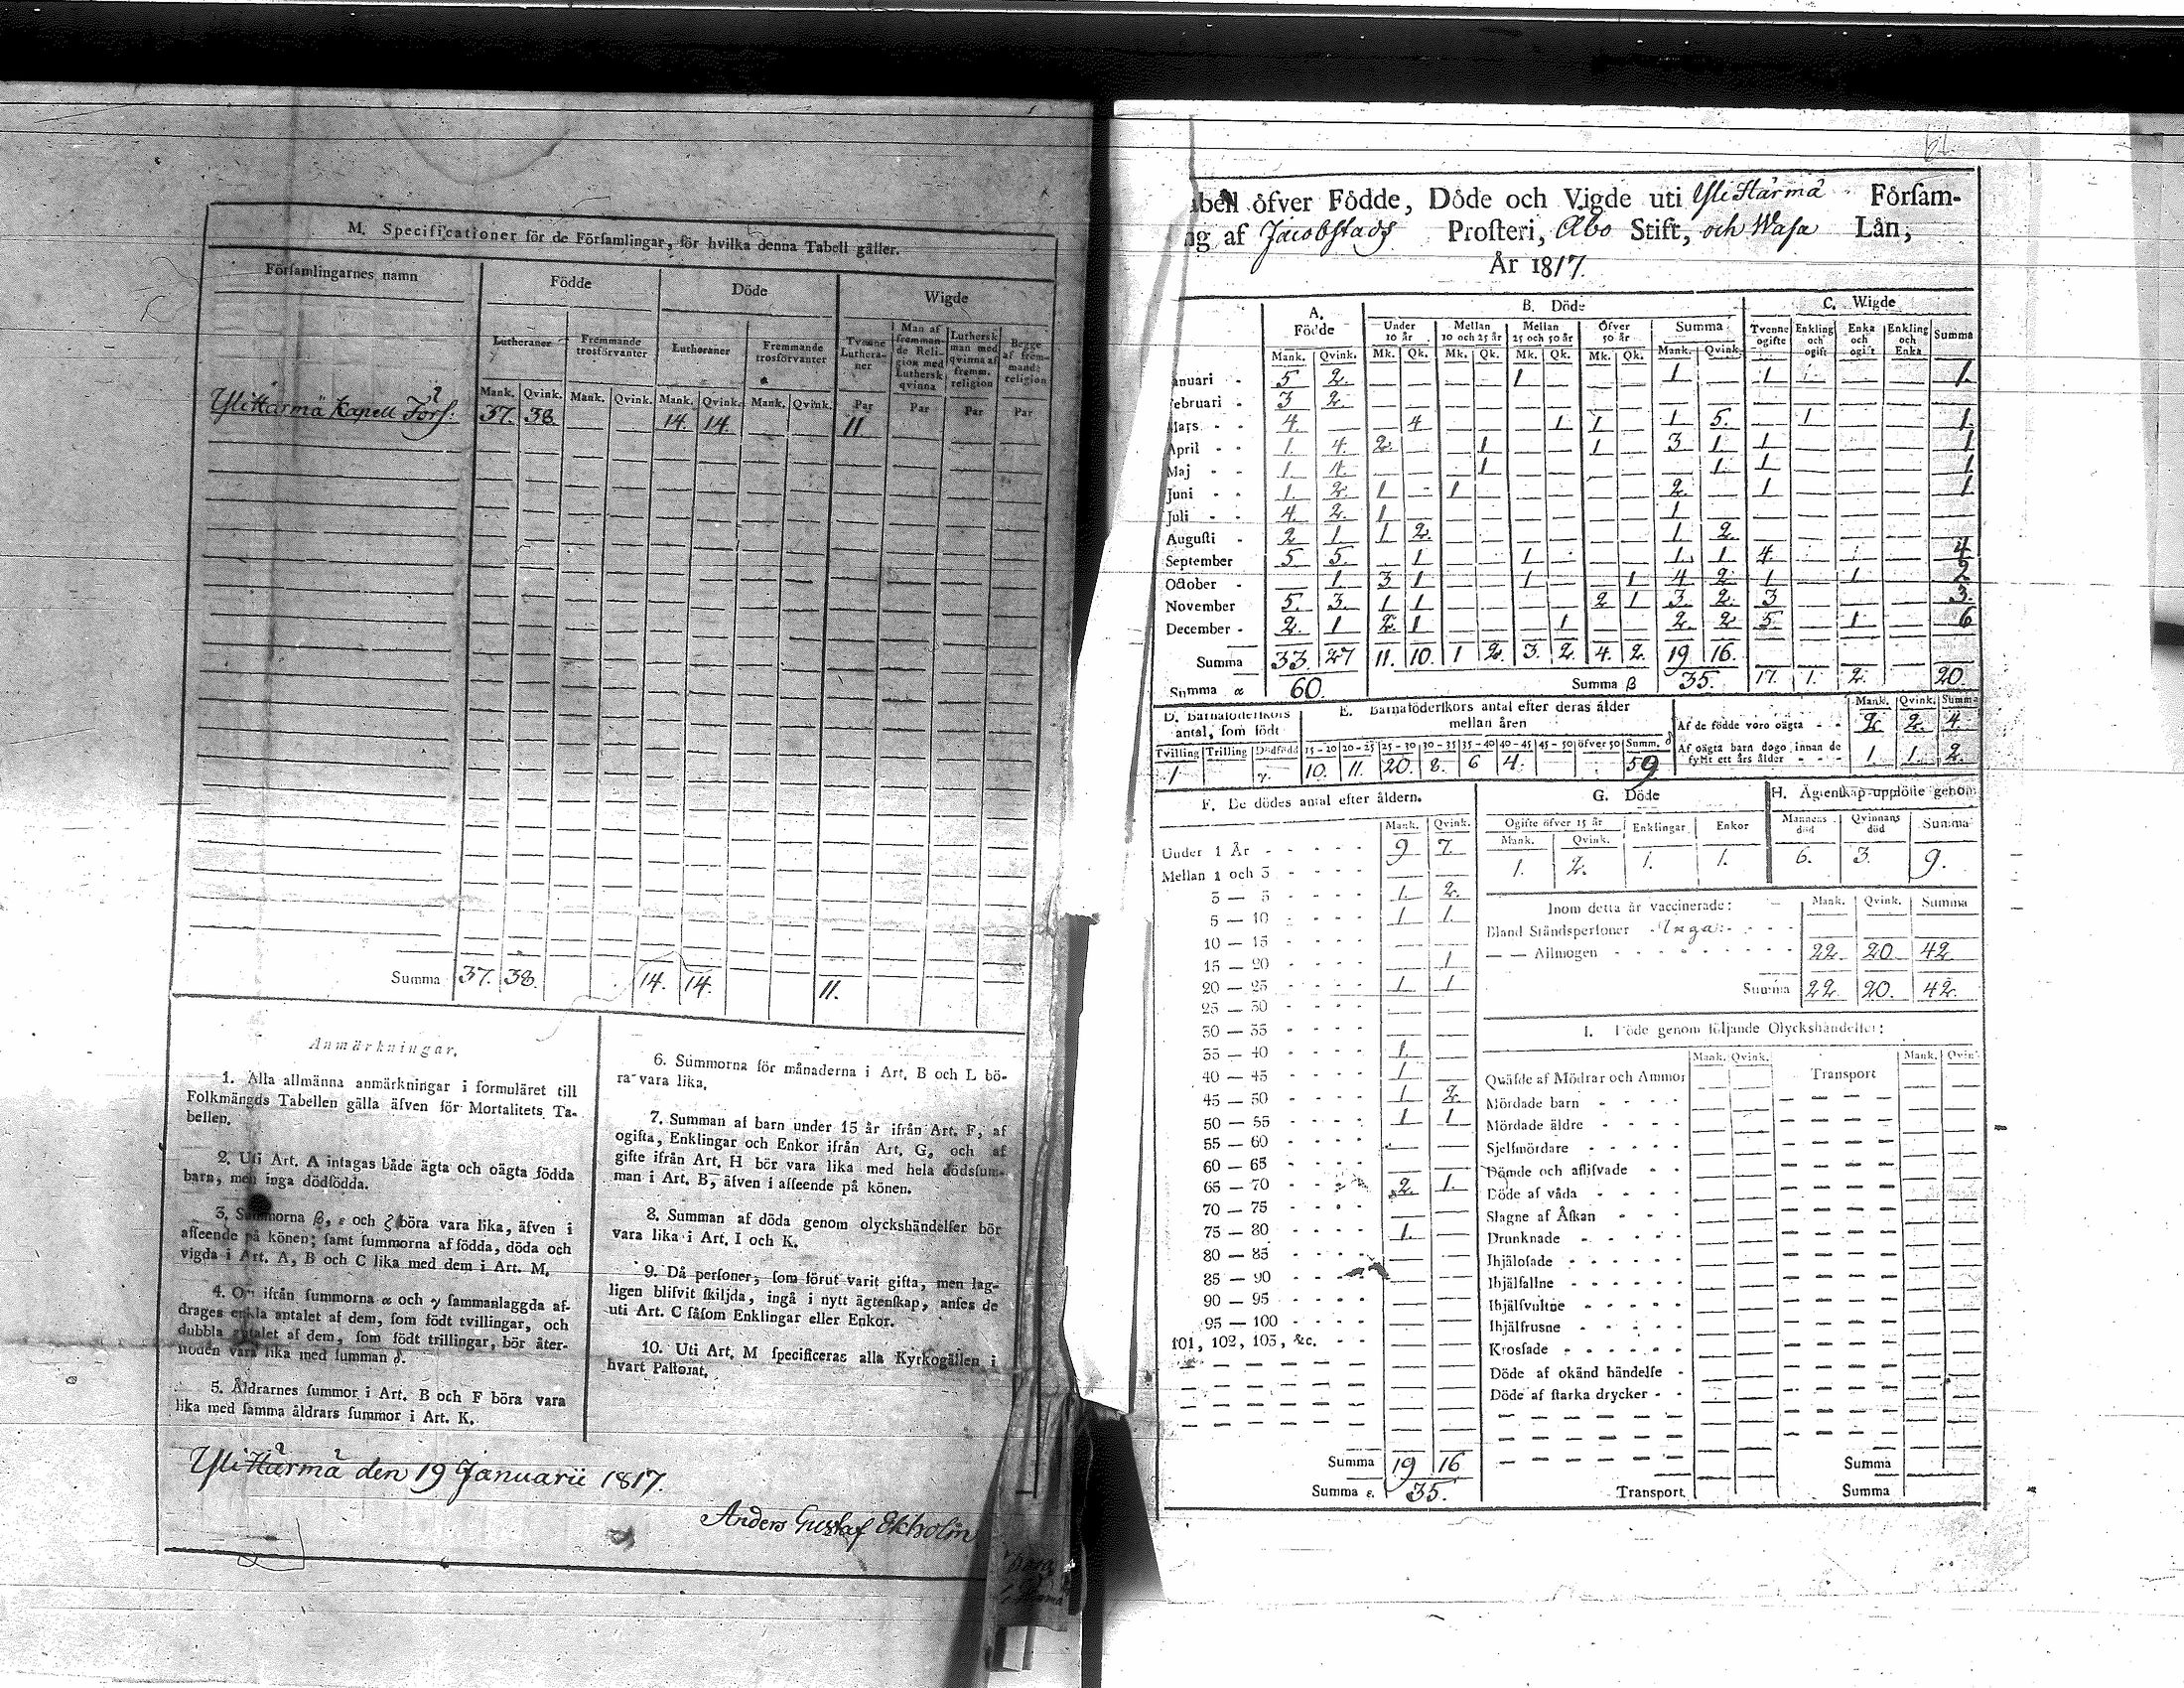 M. Specificationer för de Försàmlingar, för hvilka denna Tabell gäller.
Församlingarnes namn | Födde | Döde | Wigde
Lutheraner | Fremmande trosförvanter | Lutheraner | Fremmande trosförvanter | Tvenne Lutheraner | Man af fremmande Religion med Luthersk qvinna | Luthersk man med qvinna af fremm. religion | Begge af fremmande religion
Mank. Qvink. Mank. Qvink. Mank. Qvink. Mank. Qvink. Par Par Par Par
YliHärmä Kapell Förs: 37. 38. — — 14. 14. — — 11.
Summa 37. 38. 14. 14. 11.
Anmärkningar.
1. Alla allmänna anmärkningar i formuläret till
Folkmängds Tabellen gälla äfven för Mortalitets Ta-
bellen.
2. Uti Art. A intagas både ägta och oägta födda
barn, men inga dödfödda.
3. Summorna β, ε och ζ böra vara lika, äfven i
afseende på könen; samt summorna af födda, döda och
vigda i Art. A, B och C lika med dem i Art. M.
4. Om ifrån summorna α och γ sammanlaggda af-
drages enkla antalet af dem, som födt tvillingar, och
dubbla antalet af dem, som födt trillingar, bör åter-
stoden vara lika med summan δ.
5. Åldrarnes summor i Art. B och F böra vara
lika med samma åldrars summor i Art. K.
6. Summorna för månaderna i Art. B och L bö-
ra vara lika.
7. Summan af barn under 15 år ifrån Art. F, af
ogifta, Enklingar och Enkor ifrån Art. G, och af
gifte ifrån Art. H bör vara lika med hela dödssum-
man i Art. B, äfven i afseende på könen.
8. Summan af döda genom olyckshändelser bör
vara lika i Art. I och K.
9. Då personer, som förut varit gifta, men lag-
ligen blifvit skiljda, ingå i nytt ägtenskap, anses de
uti Art. C såsom Enklingar eller Enkor.
10. Uti Art. M specificeras alla Kyrkogällen i
hvart Pastorat.
YliHärmä den 19 Januarii 1817.
Anders Gustaf Ekholm
61
abell öfver Födde, Döde och Vigde uti YliHärmä Församling
ng af Jacobstads Prosteri, Åbo Stift, och Wasa Län,
År 1817.
A. Födde | B. Döde | C. Wigde
Under 10 år | Mellan 10 och 25 år | Mellan 25 och 50 år | Öfver 50 år | Summa | Tvenne ogifte | Enkling och ogift | Enka och ogift | Enkling och Enka | Summa
Mank. Qvink. Mk. Qk. Mk. Qk. Mk. Qk. Mk. Qk. Mank. Qvink.
anuari - 5 2. — — — — 1 — — — 1 — 1 — — — 1.
ebruari - 3 2. — — — — — — — — — — — — — — —
Mars - - 4. — — 4 — — — 1 1 — 1 5. — 1 — — 1.
April - - 1. 4. 2. — — 1 — — 1 — 3 1 1 — — — 1
Maj - - 1. 4. — — — 1 — — — — — 1. 1 — — — 1
Juni - - 1. 2. 1 — 1 — — — — — 2. — 1 — — — 1
Juli - - 4. 2. 1 — — — — — — — 1 — — — — — —
Augusti - 2 1 1 2. — — — — — — 1 2. — — — — —
September 5 5. — 1 — — 1 — — — 1. 1 4. — — — 4
October - — 1. 3 1 — — 1 — — 1 4 2 1 — 1 — 2
November 5. 3. 1 1 — — — — 2 1 3. 2. 3 — — — 3.
December - 2. 1 2. 1 — — — 1 — — 2 2 5. — 1 — 6
Summa 33. 27 11. 10. 1 2. 3. 2. 4. 2. 19 16.
Summa α 60. Summa β 35. 17. 1. 2. — 20
D. Barnaföderskors antal, som födt
Tvilling Trilling Dödfödd
1 γ.
E. Barnaföderskors antal efter deras ålder mellan åren
15-20 20-25 25-30 30-35 35-40 40-45 45-50 öfver 50 Summ. δ
10. 11. 20. 8. 6 4. 59
Mank. Qvink. Summa
Af de födde voro oägta - - 2. 2. 4.
Af oägta barn dogo innan de fyllt ett års ålder - - - 1 1. 2.
F. De dödes antal efter åldern.
Mank. Qvink.
Under 1 År - - - - - 9 7.
Mellan 1 och 3 - - - - — —
3 — 5 - - - - 1. 2.
5 — 10 - - - - 1 1.
10 — 15 - - - - — —
15 — 20 - - - - — 1
20 — 25 - - - - 1 1
25 — 30 - - - - — —
30 — 35 - - - - — —
35 — 40 - - - - 1. —
40 — 45 - - - - 1 —
45 — 50 - - - - 1 2.
50 — 55 - - - - 1 1
55 — 60 - - - - — —
60 — 65 - - - - — —
65 — 70 - - - - 2. 1.
70 — 75 - - - - — —
75 — 80 - - - - 1. —
80 — 85 - - - - — —
85 — 90 - - - - — —
90 — 95 - - - - — —
95 — 100 - - - - — —
101, 102, 103, &c. - - — —
Summa 19 16
Summa ε. 35.
G. Döde
Ogifte öfver 15 år | Enklingar | Enkor
Mank. Qvink.
1. 2. 1. 1.
H. Ägtenskap upplöste genom
Mannens död | Qvinnans död | Summa
6. 3. 9.
Inom detta år vaccinerade: Mank. Qvink. Summa
Bland Ståndspersoner - Inga: - - - -
— — Allmogen - - - - - - - - 22 20 42
Summa 22 20. 42.
I. Döde genom följande Olyckshändelser:
Mank. Qvink. Mank. Qvink
Qwäfde af Mödrar och Ammor Transport
Mördade barn - - - -
Mördade äldre - - - -
Sjelfmördare - - - -
Dömde och aflifvade - -
Döde af våda - - - -
Slagne af Åskan - - -
Drunknade - - - - -
Ihjälosade - - - - - -
Ihjälfallne - - - - - -
Ihjälsvultne - - - - -
Ihjälfrusne - - - - -
Krossade - - - - - -
Döde af okänd händelse -
Döde af starka drycker - -
Summa
Transport. Summa